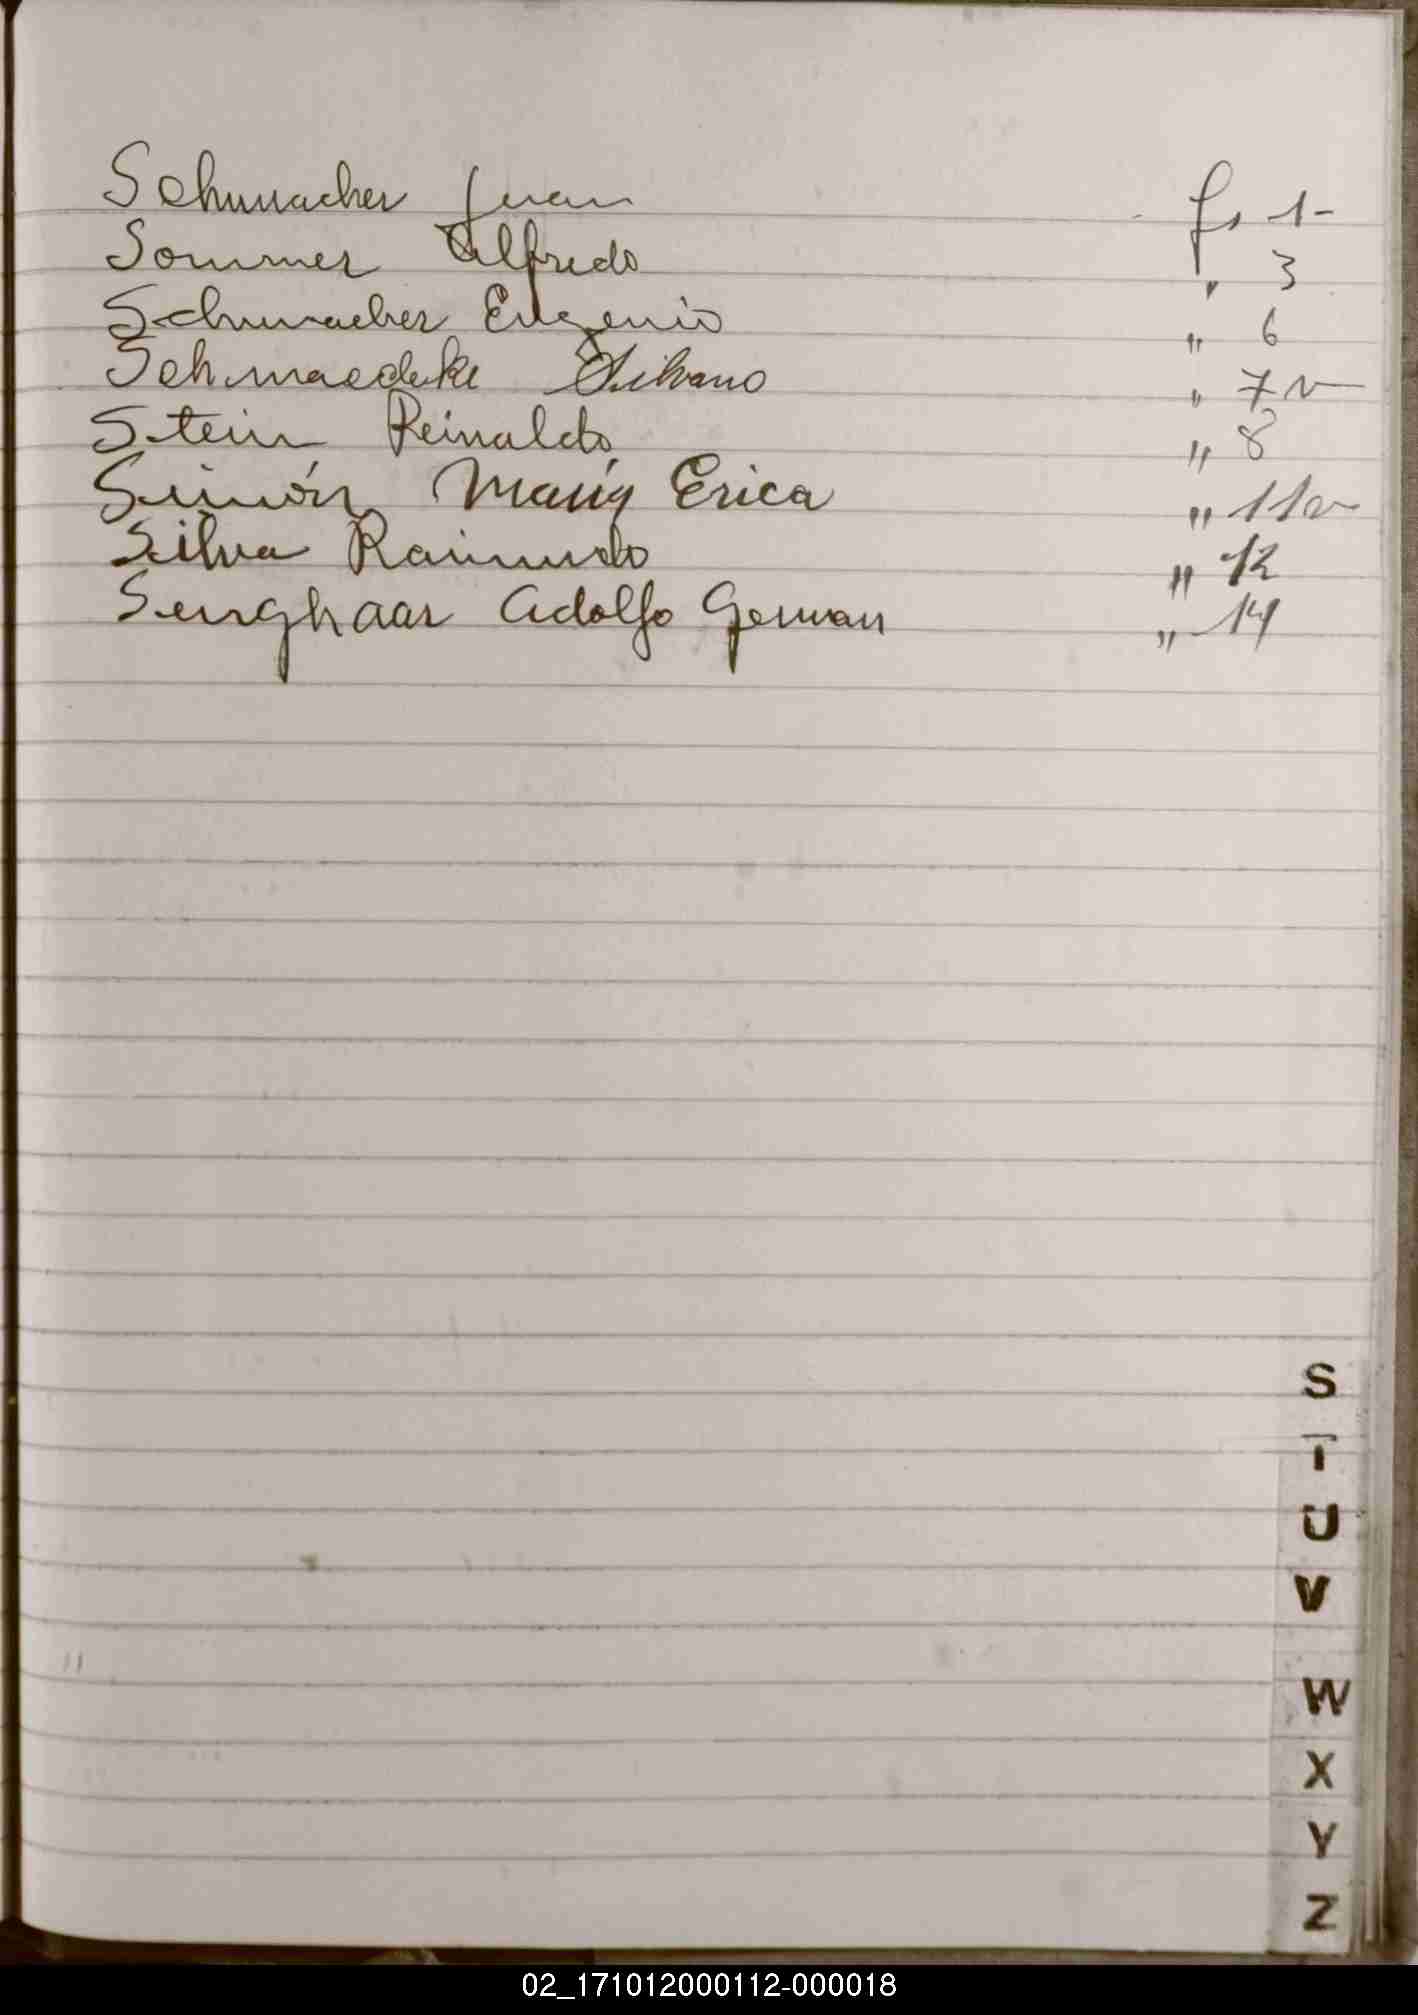 Schumacher Juan fs 1-
Sommer Alfredo " 3
Schumacher Eugenio " 6
Schmaedeke Silvano " 7v
Stein Reinaldo " 8
Simón María Erica " 11v
Silva Raimundo " 12
Senghaas Adolfo German " 14
S
T
U
V
W
X
Y
Z
02_171012000112-000018